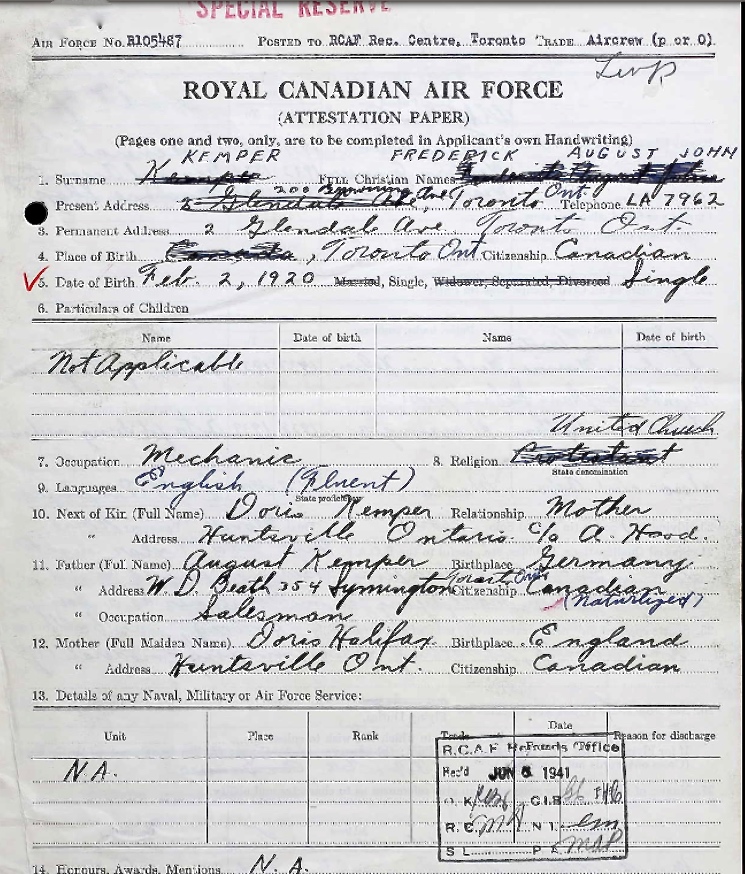 SPECIAL RESERVE
AIR FORCE NO. R105487 POSTED TO RCAF Rec. Centre, Toronto TRADE Aircrew (P or O)
ROYAL CANADIAN AIR FORCE
(ATTESTATION PAPER)
(Pages one and two, only, are to be completed in Applicant's own Handwriting)
KEMPER FREDERICK AUGUST JOHN
1. Surname Full Christian Names
200 Browning Ave Ont.
2. Present Address 2 Glendale Ave, Toronto Telephone LA 7962
3. Permanent Address 2 Glendale Ave. Toronto Ont.
4. Place of Birth Canada, Toronto Ont. Citizenship Canadian
5. Date of Birth Feb. 2, 1920 Married, Single, Widower, Separated, Divorced Single
6. Particulars of Children
Name Date of birth Name Date of birth
Not Applicable
United Church
7. Occupation Mechanic 8. Religion Protestant
State denomination
9. Languages English (Fluent)
State proficiency
10. Next of Kin (Full Name) Doris Kemper Relationship Mother
" Address Huntsville Ontario. c/o A. Hood.
11. Father (Full Name) August Kemper Birthplace Germany
" Address W. D. Beath 354 Symington Toronto, Ont. Citizenship Canadian
(Naturlized)
" Occupation Salesman
12. Mother (Full Maiden Name) Doris Halifax Birthplace England
" Address Huntsville Ont. Citizenship Canadian
13. Details of any Naval, Military or Air Force Service:
Unit Place Rank Trade Date Reason for discharge
N.A.
R.C.A.F. Records Office
Rec'd JUN 6 1941
O.K. C.I.B.
R.C. N.I.
S L P A
14. Honours, Awards, Mentions N. A.